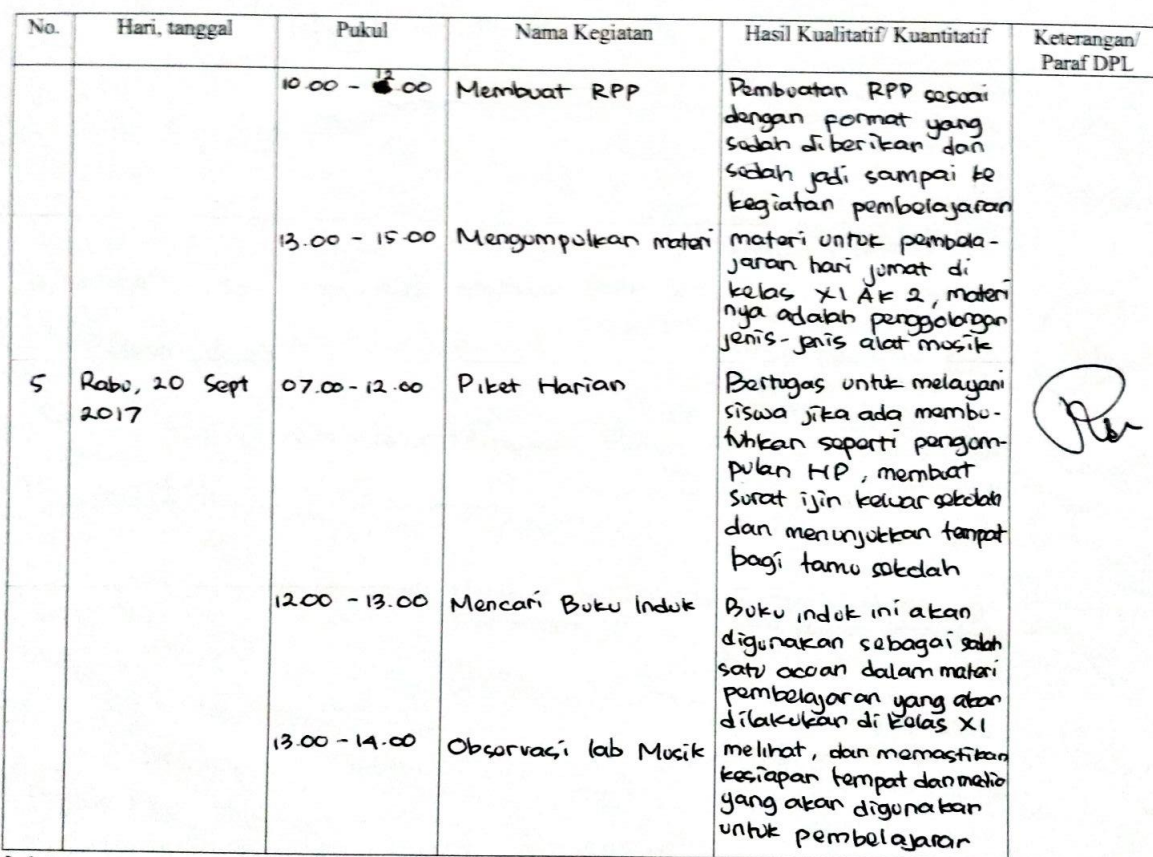 No. Hari, tanggal Pukul Nama Kegiatan Hasil Kualitatif/ Kuantitatif Keterangan/
Paraf DPL
10.00 - 12.00 Membuat RPP Pembuatan RPP sesuai
dengan format yang
sudah diberikan dan
sudah jadi sampai ke
kegiatan pembelajaran
13.00 - 15.00 Mengumpulkan materi materi untuk pembela-
jaran hari jumat di
kelas XI AK 2, materi
nya adalah penggolongan
jenis-jenis alat musik
5 Rabu, 20 Sept 07.00 - 12.00 Piket Harian Bertugas untuk melayani
2017 siswa jika ada membu-
tuhkan seperti pengum-
pulan HP, membuat
surat ijin keluar sekolah
dan menunjukkan tempat
bagi tamu sekolah
12.00 - 13.00 Mencari Buku Induk Buku induk ini akan
digunakan sebagai salah
satu acuan dalam materi
pembelajaran yang akan
dilakukan di kelas XI
13.00 - 14.00 Observasi lab Musik melihat, dan memastikan
kesiapan tempat dan media
yang akan digunakan
untuk pembelajaran